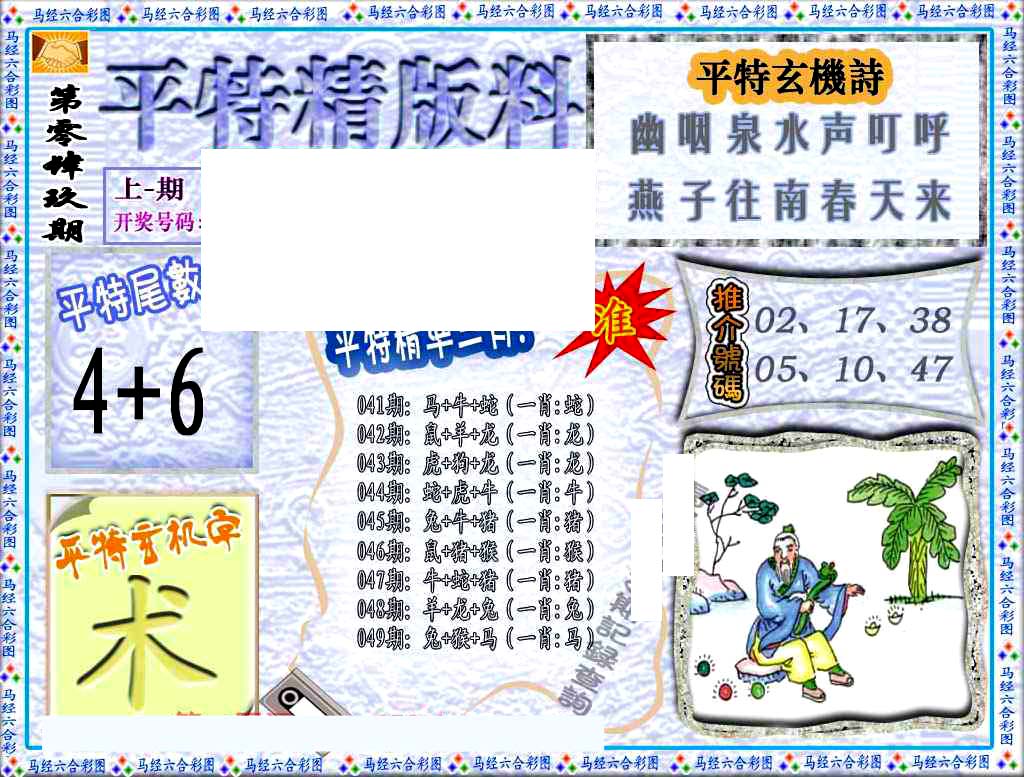 马经六合彩图 马经六合彩图 马经六合彩图 马经六合彩图 马经六合彩图 马经六合彩图 马经六合彩图 马经六合彩图 马经六合彩图
第零肆玖期
平特精版料
上-期
开奖号码:
平特玄機詩
幽咽泉水声叮呼
燕子往南春天来
平特尾數
4+6
准
推介號碼
02、17、38
05、10、47
041期: 马+牛+蛇(一肖:蛇)
042期: 鼠+羊+龙(一肖:龙)
043期: 虎+狗+龙(一肖:龙)
044期: 蛇+虎+牛(一肖:牛)
045期: 兔+牛+猪(一肖:猪)
046期: 鼠+猪+猴(一肖:猴)
047期: 牛+蛇+猪(一肖:猪)
048期: 羊+龙+兔(一肖:兔)
049期: 兔+猴+马(一肖:马)
記録查詢
平特玄机字
术
马经六合彩图 马经六合彩图 马经六合彩图 马经六合彩图 马经六合彩图 马经六合彩图 马经六合彩图 马经六合彩图 马经六合彩图